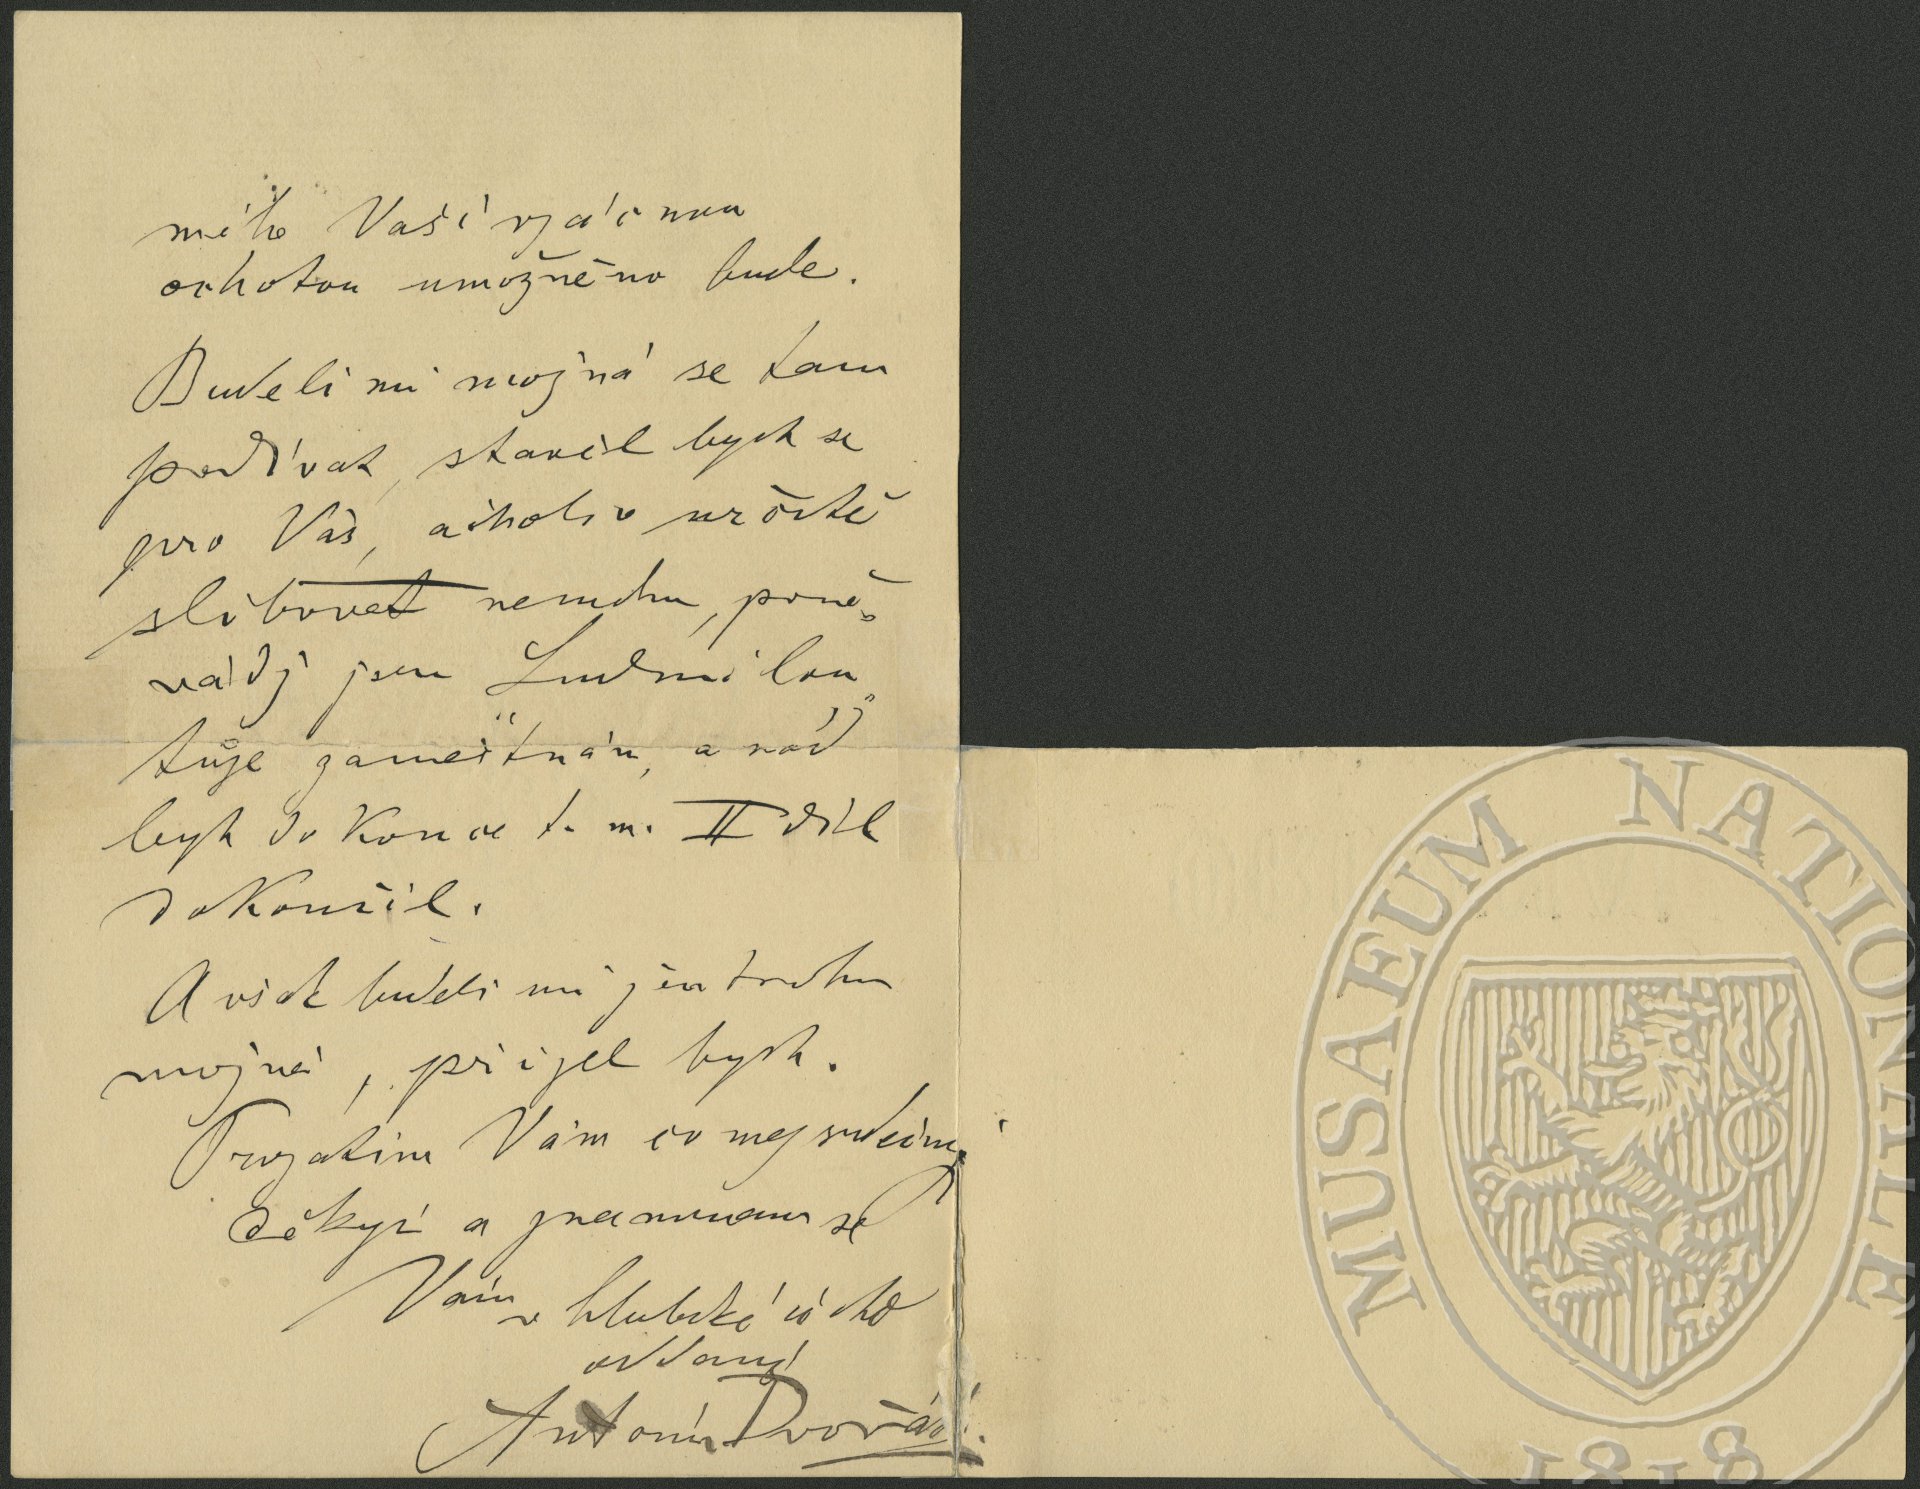 mého Vaší vzácnou
ochotou umožněno bude.
Budeli mi možná se tam
podívat, stavěl bych se
pro Vás, ačkoliv určitě
slibovat nemohu, poně-
vádž jsem „Ludmilou"
tuze zaměstnán, a rád
bych do konce t. m. II díl
dokončil.
Avšak budeli mi jen trochu
možná, přijel bych.
Prozatím Vám co nejsrdečněj
děkuji a znamenám se
Vám v hluboké úctě
oddaný
Antonín Dvořák.
MUSAEUM NATIONALE
1818